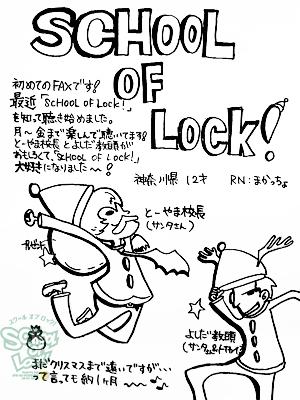 SCHOOL
OF
LOCK!
初めてのFAXです!
最近「SCHOOL OF LOCK!」
を知って聴き始めました。
月〜金まで楽しんで聴いてます!
とーやま校長とよしだ教頭が
おもしろくて、「SCHOOL OF LOCK!」
大好きになりました〜!
神奈川県 12才 RN:まかっちょ
とーやま校長
(サンタさん)
よしだ教頭
スクール オブ ロック!
SCHOOL OF LOCK!
まだクリスマスまで遠いですが、、、
って言っても約1ヶ月 〜〜